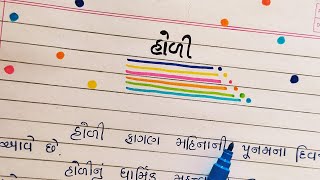 હોળી
હોળી ફાગણ મહિનાની પૂનમના દિવ
આવે છે.
હોળીનું ધાર્મિક મહત્વ